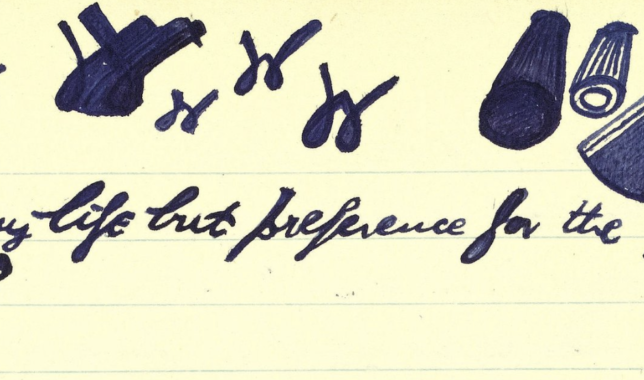 life but preference for the